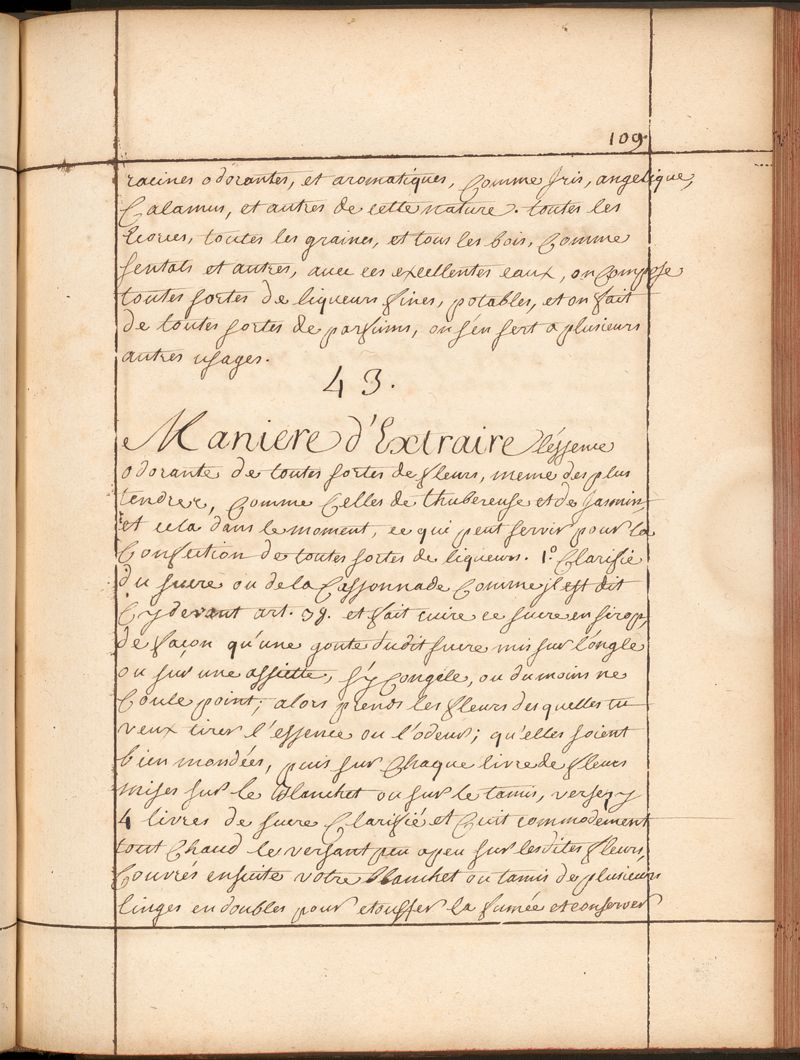 109.
racines odorantes, et aromatiques, Comme Iris, angelique,
Calamus, et autres de cette nature. toutes les
Ecorces, toutes les graines, et tous les bois, Comme
sentals et autres, avec ces excellentes eaux, on Compose
toutes sortes de liqueurs fines, potables, et on fait
de toutes sortes de parfums, on s'en sert a plusieurs
autres usages.
43.
Maniere d'Extraire l'éssence
odorante de toutes sortes de fleurs, meme des plus
tendres, Comme Celles de thubereuse et de Jasmin,
et cela dans le moment, ce qui peut servir pour la
Confection de toutes sortes de liqueurs. 1.º Clarifié
du sucre ou de la Cassonnade Comme il est dit
Cy devant art. 39. et fait cuire ce sucre en sirop,
de façon qu'une goute dudit sucre mis sur l'ongle
ou sur une assiette, s'y Congéle, ou du moins ne
Coule point; alors prends les fleurs desquelles tu
veux tirer l'essence ou l'odeur; qu'elles soient
bien mondées, puis sur Chaque livre de fleurs
mises sur le blanchet ou sur le tamis, verses y
4 livres de sucre Clarifié et Cuit commodement
tout Chaud le versant peu apeu sur lesdites fleurs,
Couvrés ensuite votre blanchet ou tamis de plusieurs
linges en doubles pour etouffer la fumée et conserver